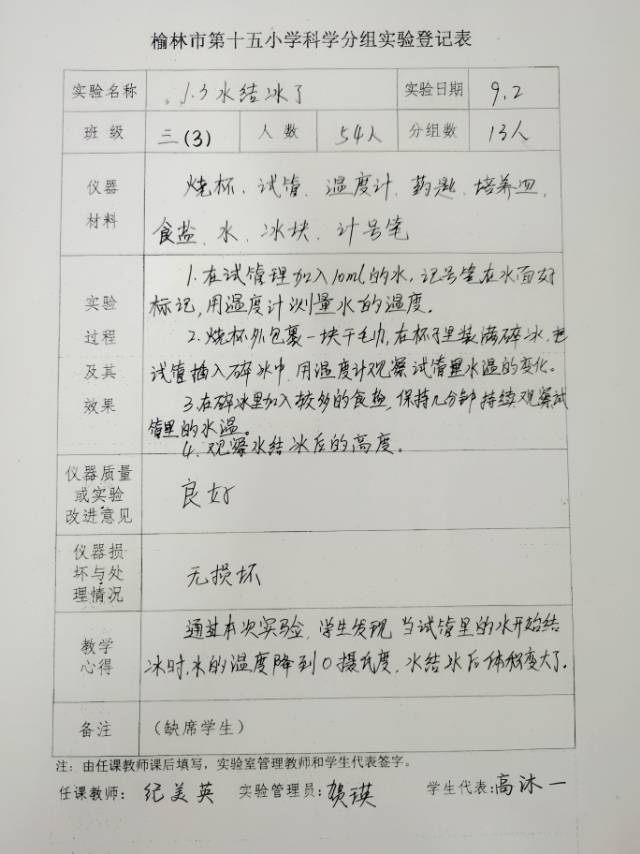 榆林市第十五小学科学分组实验登记表
实验名称 1.3水结冰了 实验日期 9.2
班 级 三(3) 人 数 54人 分组数 13人
仪器 材料 烧杯、试管、温度计、药匙、培养皿、
食盐、水、冰块、计号笔
实验 过程 及其 效果 1.在试管理加入10ml的水,记号笔在水面好
标记,用温度计测量水的温度。
2.烧杯外包裹一块干毛巾,在杯子里装满碎冰,把
试管插入碎冰中,用温度计观察试管里水温的变化。
3.在碎冰里加入较多的食盐,保持几分钟持续观察试
管里的水温。
4.观察水结冰后的高度。
仪器质量 或实验 改进意见 良好
仪器损 坏与处 理情况 无损坏
教学 心得 通过本次实验,学生发现,当试管里的水开始结
冰时,水的温度降到0摄氏度,水结冰后体积变大了.
备注 (缺席学生)
注:由任课教师课后填写,实验室管理教师和学生代表签字。
任课教师:纪美英 实验管理员:贺瑛 学生代表:高沐一